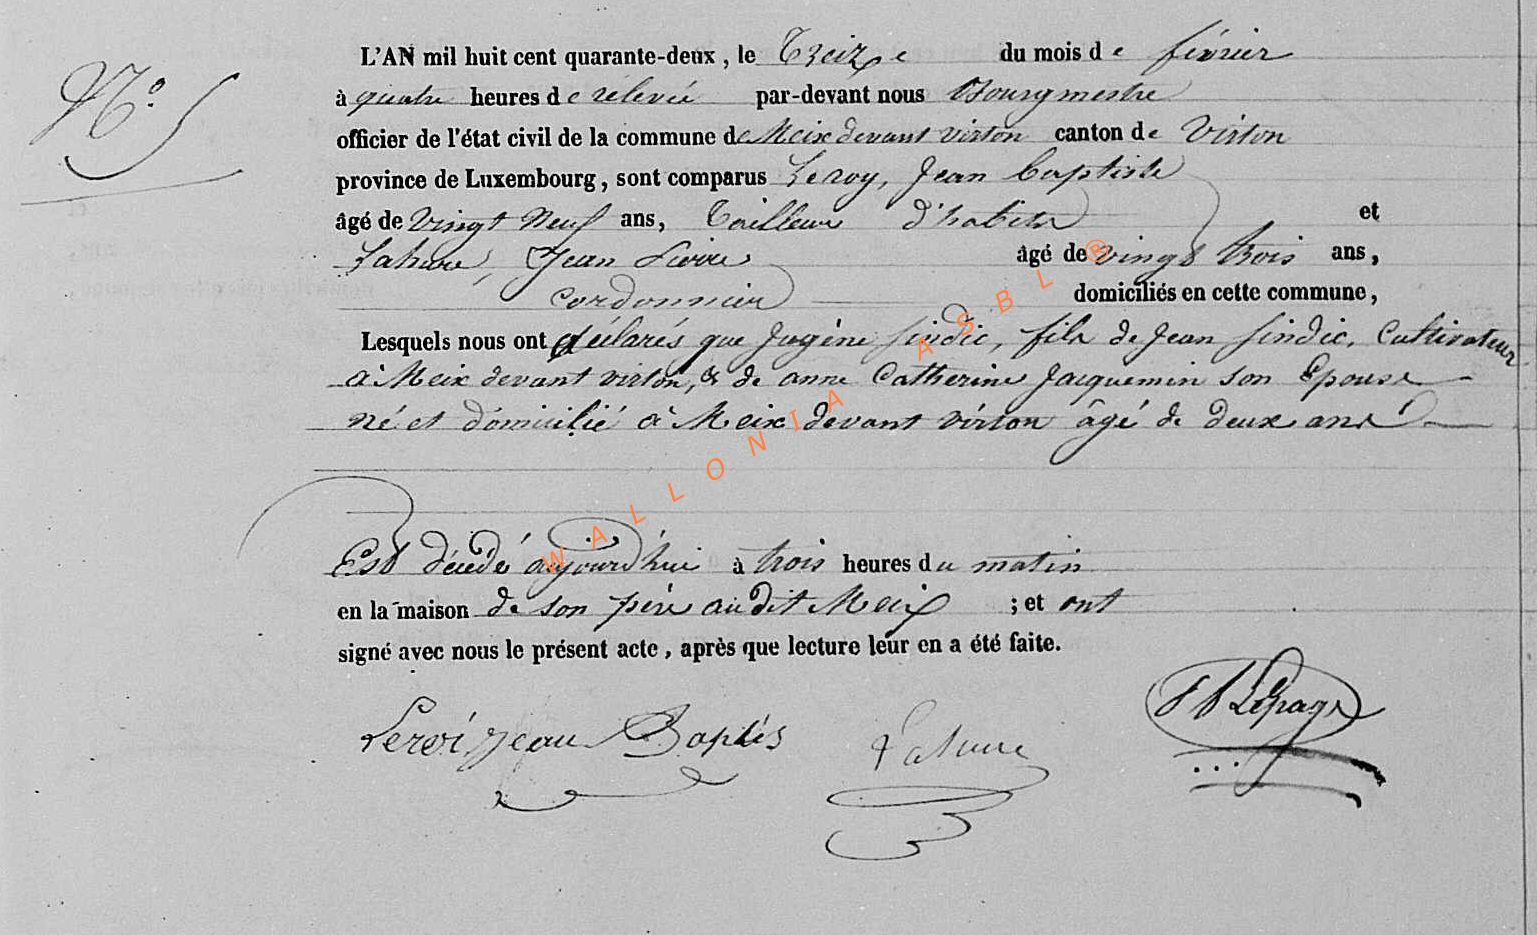 N.° 5
L'AN mil huit cent quarante-deux, le Treize du mois de février
à quatre heures de relevée par-devant nous Bourgmestre
officier de l'état civil de la commune de Meix devant virton canton de Virton
province de Luxembourg, sont comparus Leroy, Jean Baptiste
âgé de Vingt Neuf ans, Tailleur d'habits et
Lahure, Jean Pierre âgé de vingt trois ans,
Cordonnier domiciliés en cette commune,
Lesquels nous ont déclarés que Jugène Sindic, fils de Jean Sindic, Cultivateur
à Meix devant virton, & de anne Catherine Jacquemin son Epouse
né et domicilié à Meix devant virton âgé de deux ans
Est décédé aujourd'hui à trois heures du matin
en la maison de son père audit Meix ; et ont
signé avec nous le présent acte, après que lecture leur en a été faite.
Leroi Jean Baptis Lahure Lepage
WALLONIA ASBL ®